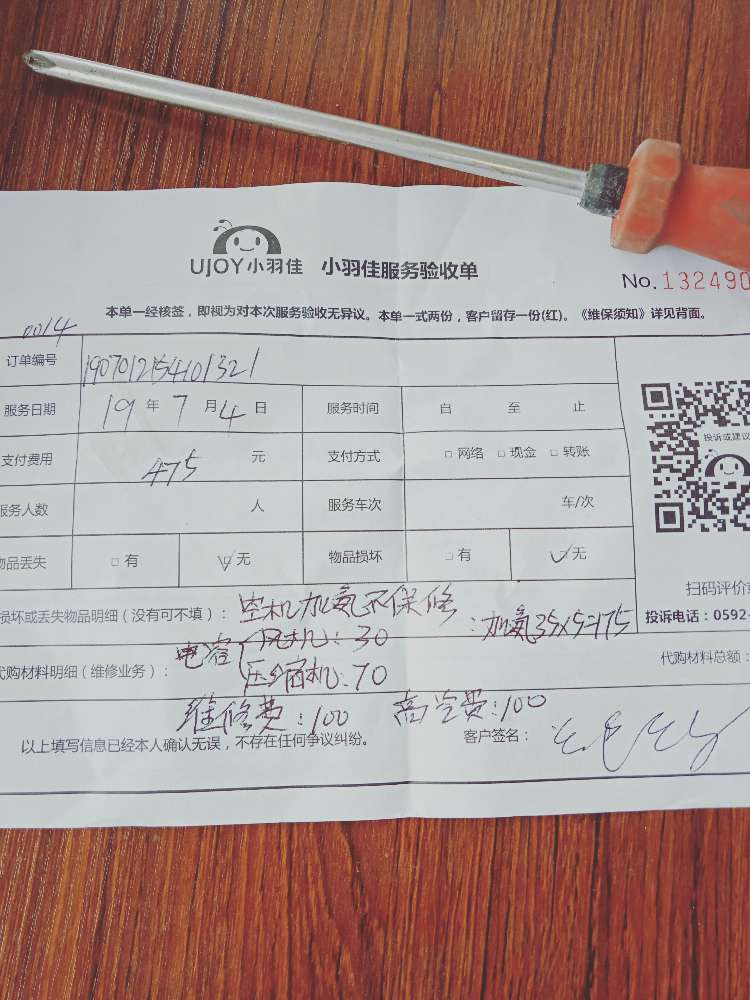 UJOY小羽佳 小羽佳服务验收单
No. 132490
本单一经核签，即视为对本次服务验收无异议。本单一式两份，客户留存一份(红)。《维保须知》详见背面。
0014
订单编号 1907012154101321
服务日期 19 年 7 月 4 日 服务时间 自 至 止
支付费用 475 元 支付方式 □ 网络 □ 现金 □ 转账
投诉或建议
服务人数 人 服务车次 车/次
物品丢失 □ 有 ☑ 无 物品损坏 □ 有 ☑ 无
扫码评价
损坏或丢失物品明细（没有可不填）： 空机加氟不保修 : 加氟35×5=175
投诉电话：0592-
代购材料明细（维修业务）： 电容 风机: 30
压缩机: 70
代购材料总额：
维修费: 100 高空费: 100
以上填写信息已经本人确认无误，不存在任何争议纠纷。 客户签名：